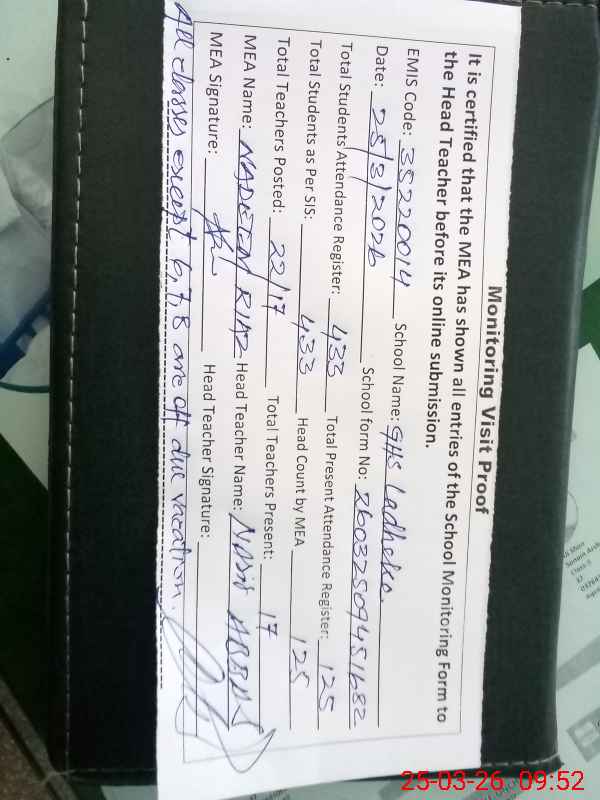 Monitoring Visit Proof
It is certified that the MEA has shown all entries of the School Monitoring Form to
the Head Teacher before its online submission.
EMIS Code: 35220014 School Name: GHS Ladheke.
Date: 25/3/2026 School form No: 26032509451682
Total Students Attendance Register: 433 Total Present Attendance Register: 125
Total Students as Per SIS: 433 Head Count by MEA 125
Total Teachers Posted: 22/17 Total Teachers Present: 17
MEA Name: NADEEM RIAZ Head Teacher Name: NASIR ABBAS
MEA Signature: Head Teacher Signature:
All classes except 6,7,8 are off due vacation.
25-03-26 09:52